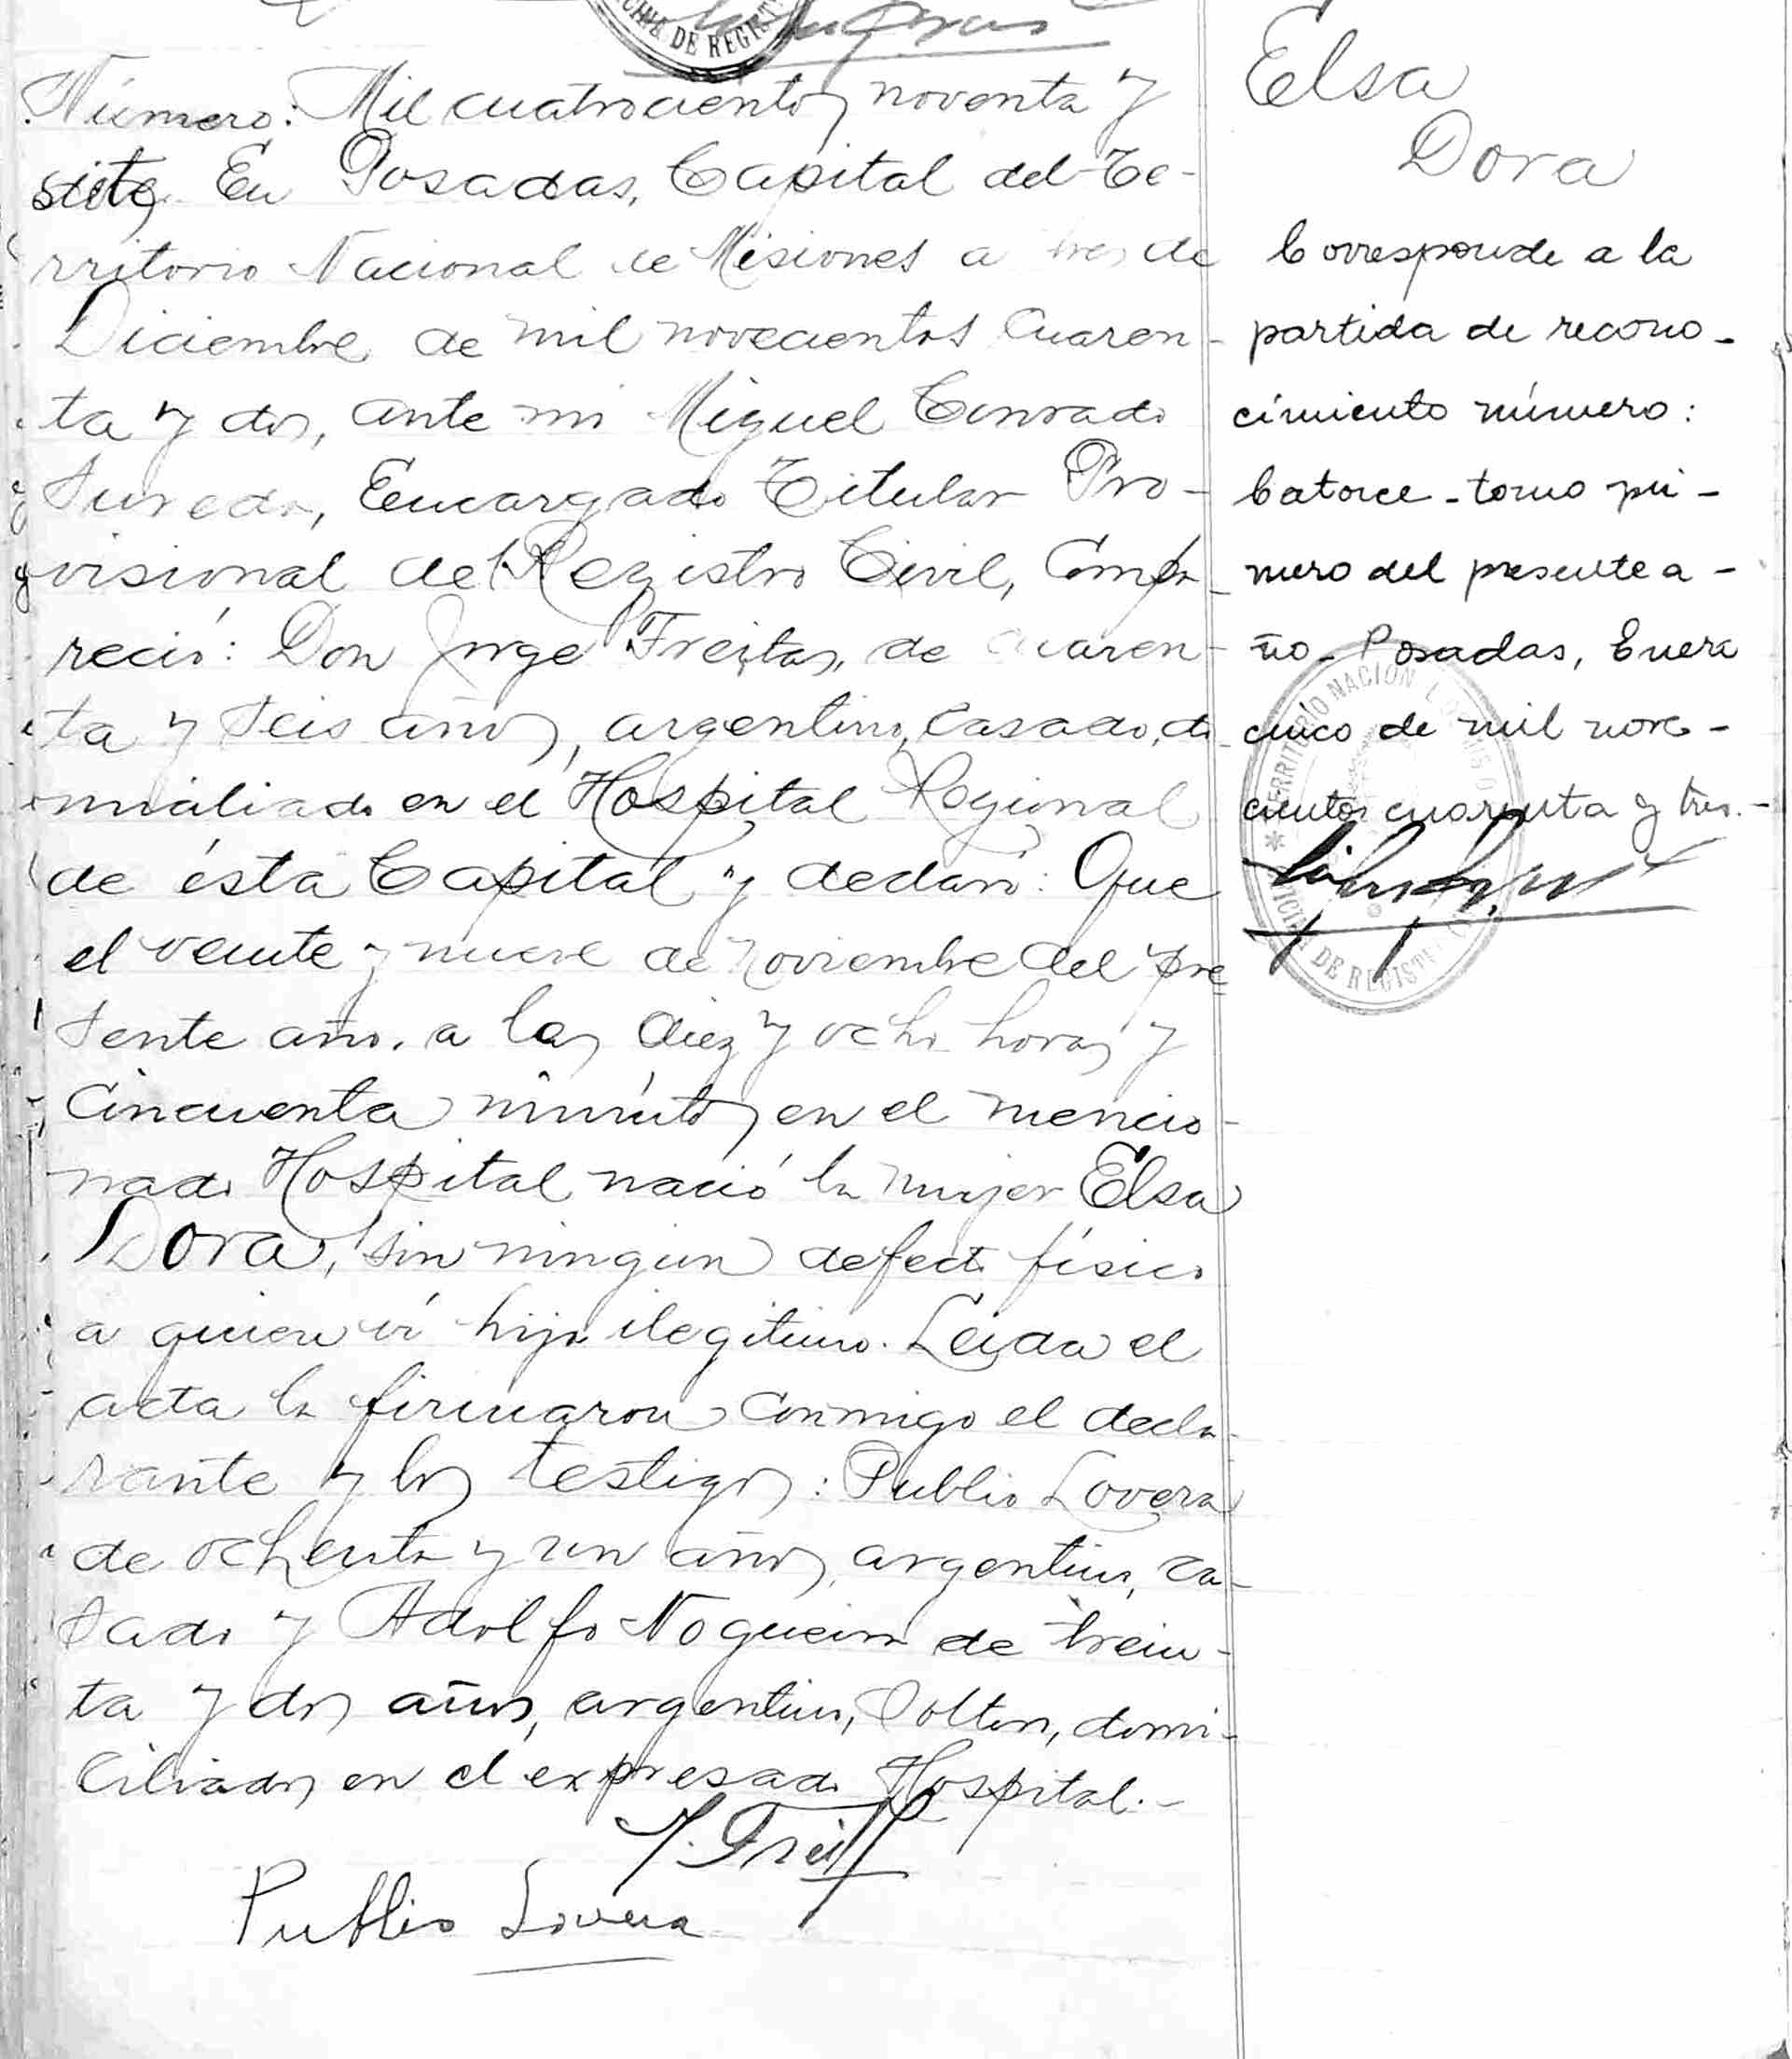 OFICINA DE REGIST
Número: Mil cuatrocientos noventa y
siete. En Posadas, Capital del Te-
rritorio Nacional de Misiones a tres de
Diciembre de mil novecientos cuaren-
ta y dos, ante mi Miguel Conrado
Sureda, Encargado Titular Pro-
visional del Registro Civil, Compa-
reció: Don Jorge Freitas, de cuaren-
ta y seis años, argentino, casado, do-
miciliado en el Hospital Regional
de ésta Capital y declaró: Que
el veinte y nueve de Noviembre del pre
sente año, a las diez y ocho horas y
cincuenta minutos en el mencio-
nado Hospital nació la mujer Elsa
Dora, sin ningun defecto físico
a quien ví hija ilegitima. Leida el
acta la firmaron conmigo el decla-
rante y los testigos: Publio Lovera
de ochenta y un años, argentino, ca-
sado y Adolfo Nogueira de trein-
ta y dos años, argentino, soltero, domi-
ciliados en el expresado Hospital.-
J. Freit
Publio Lovera
Elsa
Dora
Corresponde a la
partida de recono-
cimiento número:
Catorce - tomo pri-
mero del presente a-
ño - Posadas, Enero
cinco de mil nove-
cientos cuarenta y tres.-
TERRITORIO NACIONAL DE MISIONES
OFICINA DE REGISTRO